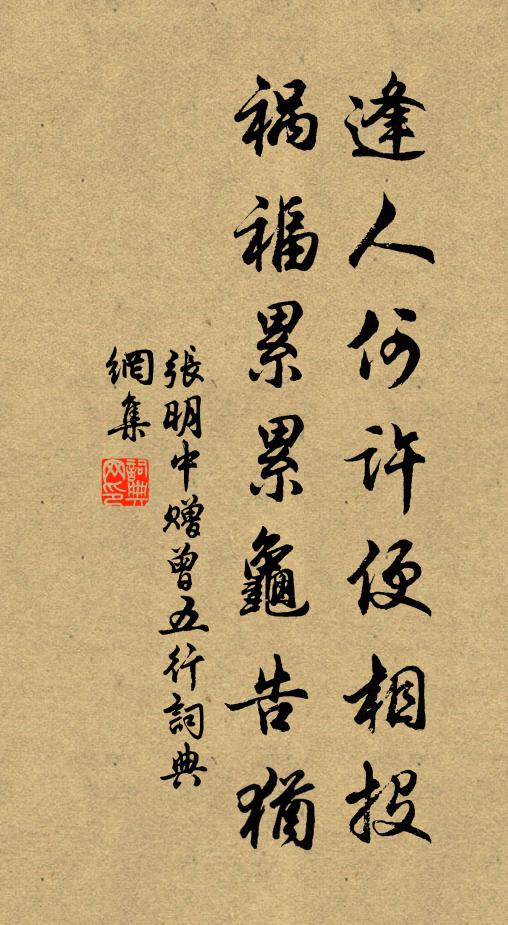 逢人何許便相投
禍福累累龜告猶
張明中贈曾五行詞典
網集
詞典
网印